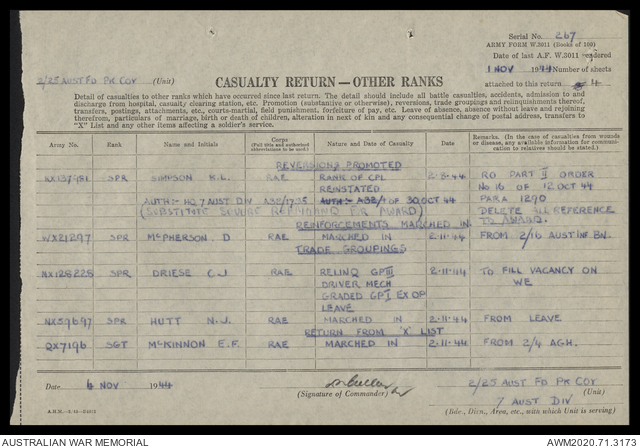 Serial No. 267
ARMY FORM W.3011 (Books of 100)
Date of last A.F. W.3011 rendered
1 NOV 1944 Number of sheets
attached to this return 4
2/25 AUST FD PK COY (Unit)
CASUALTY RETURN—OTHER RANKS
Detail of casualties to other ranks which have occurred since last return. The detail should include all battle casualties, accidents, admission to and
discharge from hospital, casualty clearing station, etc. Promotion (substantive or otherwise), reversions, trade groupings and relinquishments thereof,
transfers, postings, attachments, etc., courts-martial, field punishment, forfeiture of pay, etc. Leave of absence, absence without leave and rejoining
therefrom, particulars of marriage, birth or death of children, alteration in next of kin and any consequential change of postal address, transfers to
"X" List and any other items affecting a soldier's service.
Army No. Rank Name and Initials Corps (Full title and authorised abbreviations to be used.) Nature and Date of Casualty Date Remarks. (In the case of casualties from wounds or disease, any available information for communication to relatives should be stated.)
REVERSIONS PROMOTED
SPR SIMPSON K.L. RAE RANK OF CPL 2-8-44 RO PART II ORDER
REINSTATED No 16 OF 12 OCT 44
AUTH:- HQ 7 AUST DIV OF 30 OCT 44 PARA 1290
DELETE ALL REFERENCE
TO AWARD.
REINFORCEMENTS MARCHED IN
WX21297 SPR McPHERSON D RAE MARCHED IN 2-11-44 FROM 2/16 AUST INF BN.
TRADE GROUPINGS
NX128228 SPR DRIESE C J RAE RELINQ GP III 2-11-44 TO FILL VACANCY ON
DRIVER MECH WE
GRADED GP I EX OP
LEAVE
NX59697 SPR HUTT N.J. RAE MARCHED IN 2-11-44 FROM LEAVE
RETURN FROM 'X' LIST
QX7196 SGT McKINNON E.F. RAE MARCHED IN 2-11-44 FROM 2/4 AGH.
Date 4 NOV 1944
(Signature of Commander)
2/25 AUST FD PK COY
(Unit)
7 AUST DIV
(Bde., Divn., Area, etc., with which Unit is serving)
AUSTRALIAN WAR MEMORIAL AWM2020.71.3173